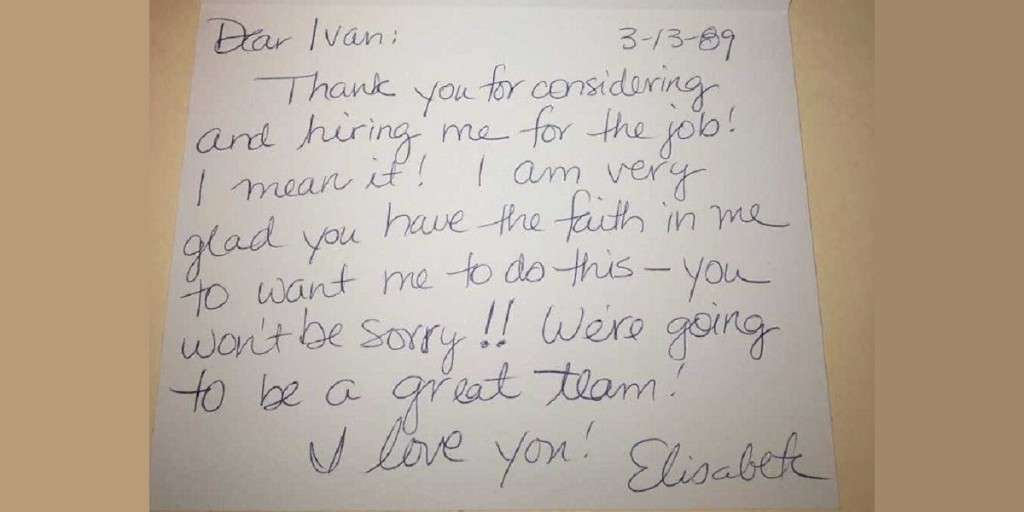 Dear Ivan: 3-13-89
Thank you for considering
and hiring me for the job!
I mean it! I am very
glad you have the faith in me
to want me to do this – you
won't be sorry!! We're going
to be a great team!
I love you! Elisabeth